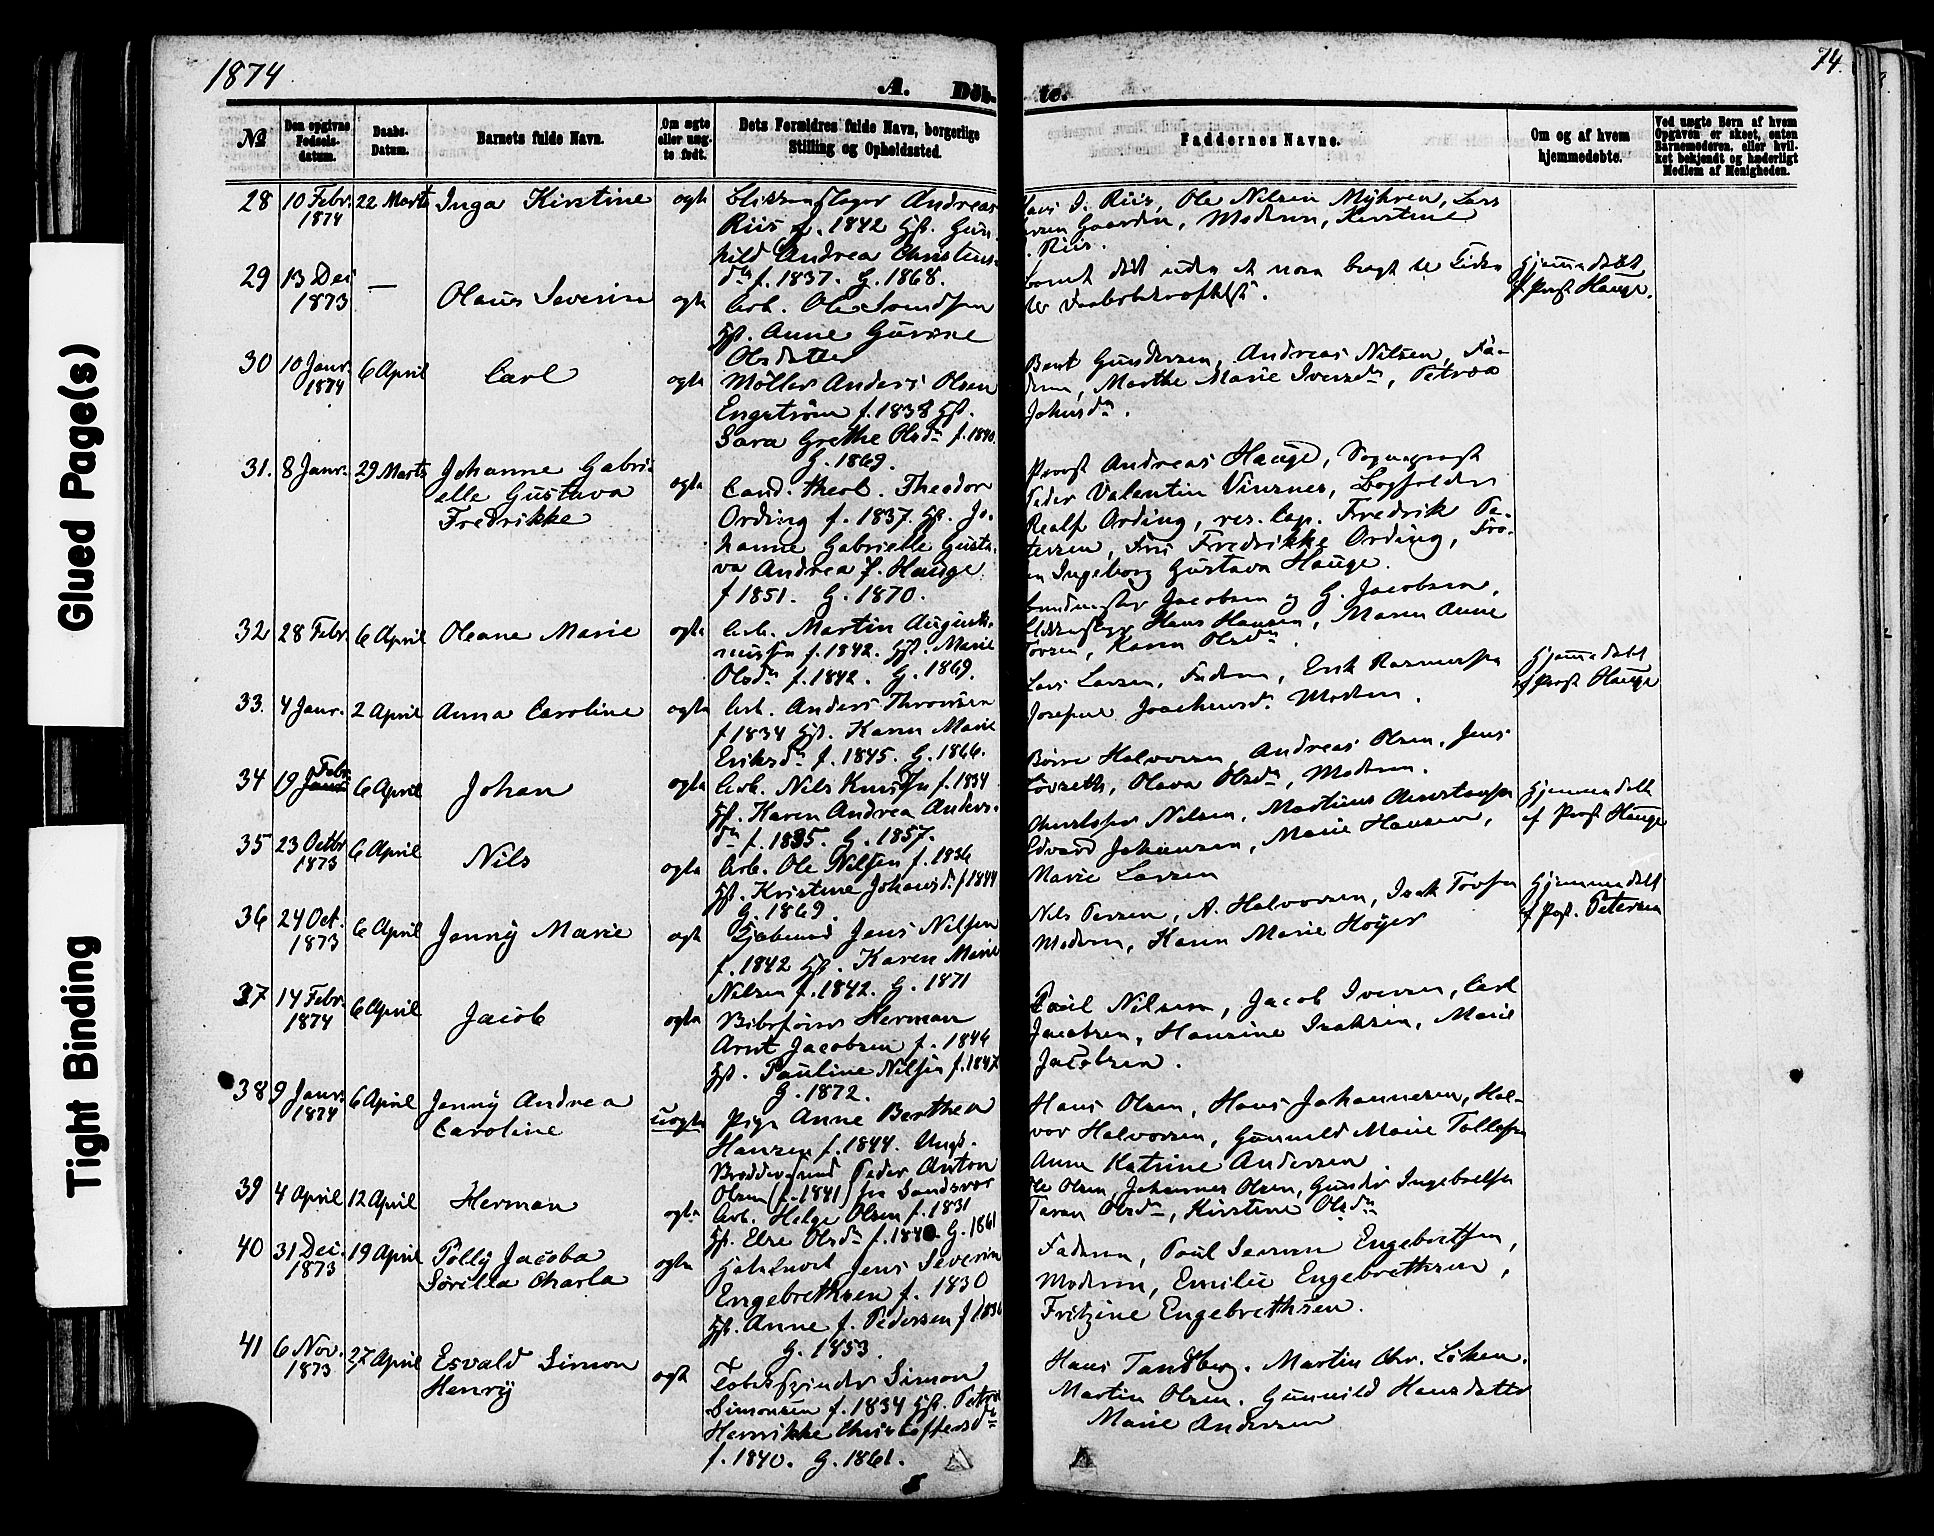 1874
74.
A. Döb- te.
№
Den opgivne Fødselsdatum.
Daabs-Datum.
Barnets fulde Navn.
Om ægte eller uægte født.
Dets Forældres fulde Navn, borgerlige Stilling og Opholdssted.
Faddernes Navne.
Om og af hvem hjemmedøbte.
Ved uægte Børn af hvem Opgaven er skeet, enten Barnemoderen, eller hvilket bekjendt og hæderligt Medlem af Menigheden.
28 10 Febr. 1874 22 Marts Inga Kirstine ægte
Andreas
Riis f. 1842 Hst. Gun-
hild Andrea Christens-
dtr f. 1837. G. 1868.
Riis, Ole Nilsen Myhren, Lars
Gaarden, Moderen, Kirstine
Riis.
29 13 Dec 1873 — Olaus Severin ægte
Arb. Ole Svendsen
Hst. Anne Gurine
Olsdatter
Hjemmedøbt
af Prost Hauge.
30 10 Janr. 1874 6 April Carl ægte
Møller Anders Olsen
Engstrøm f. 1838 Hst.
Sara Grethe Olsdtr f. 1840.
G. 1869.
Bent Gundersen, Andreas Nilsen, Fa-
deren, Marthe Marie Iversdtr, Petrea
Johnsdtr.
31. 8 Janr. 29 Marts Johanne Gabri-
elle Gustava
Fredrikke
ægte
Cand. theol. Theodor
Ording f. 1837. Hst. Jo-
hanne Gabrielle Gusta-
va Andrea f. Hauge
f 1851. G. 1870.
Provst Andreas Hauge, Sognepræst
Peder Valentin Vinsnes, Bogholder
Realf Ording, res. Cap. Fredrik Pe-
tersen, Fru Fredrikke Ording, Frø-
en Ingeborg Gustava Hauge.
32 28 Febr. 6 April Oleane Marie ægte
Arb. Martin Augusti-
nussen f. 1842. Hst. Marie
Olsdtr f. 1842. G. 1869.
Jacobsen og G. Jacobsen,
Hans Hansen, Maren Anne
Karen Olsdtr
33. 4 Janr. 2 April Anna Caroline ægte
Arb. Anders Thronsen
f 1834 Hst. Karen Marie
Eriksdtr f. 1845. G. 1866.
Lars Larsen, Faderen, Erik Rasmussen
Josefine Joachimsdtr. Moderen.
Hjemmedøbt
af Prost Hauge
34 19 Febr. 6 April Johan ægte
Arb. Nils Knudsen f. 1834
Hst. Karen Andrea Anders-
dtr f. 1835. G. 1857.
Børre Halvorsen, Andreas Olsen, Jens
Olava Olsdtr, Moderen.
35 23 Octbr 1873 6 April Nils ægte
Arb. Ole Nilsen f. 1836
Hst. Kristine Johansdtr. f 1844
G. 1869.
Christofer Nilsen, Martinus Christensen
Edvard Johansen, Marie Hansen,
Marie Larsen
Hjemmedøbt
af Prost Hauge
36 24 Oct. 1873 6 April Jenny Marie ægte
Jens Nilsen
f. 1842 Hst. Karen Marie
Nilsen f. 1842. G. 1871
Nils A. Halvorsen, Isak
Moderen, Karen Marie Høyer
Hjemmedøbt
af Petersen
37 14 Febr. 1874 6 April Jacob ægte
Herman
Arnt Jacobsen f. 1846
Hst. Pauline Nilsen f. 1847
G. 1872.
Paul Nilsen, Jacob Iversen, Carl
Jacobsen, Hansine Isaksen, Marie
Jacobsen.
38 9 Janr. 1874 6 April Jenny Andrea
Caroline
uægte
Pige Anne Berthea
Hansen f. 1844. Ungk.
Peder Anton
Olsen (f. 1841) fra Sandsvær
Hans Olsen, Hans Johannesen, Hal-
vor Halvorsen, Gunnild Marie Tollefsen
Anne Katrine Andersen
39 4 April 12 April Herman ægte
Arb. Helge Olsen f. 1831
Hst. Else Olsdtr f. 1840 G. 1861
Ole Olsen, Johannes Olsen, Gunder Ingebretsen
Taran Olsdtr, Kirstine Olsdtr
40 31 Dec. 1873 19 April Polly Jacoba
Sorella Charla
ægte
Jens Severin
Engebrethsen f. 1830
Hst. Anne f. Pedersen f 1836
G. 1853.
Faderen, Poul Severin Engebretsen,
Moderen, Emilie Engebrethsen,
Fritzine Engebrethsen.
41 6 Nov. 1873 27 April Esvald Simon
Henry
ægte
Simon
Simonsen f. 1834 Hst. Petra
Henrikke Christoffersdtr
f. 1840. G. 1861.
Hans Tandberg. Martin Chr. Løken.
Martin Olsen. Gunnild Hansdatter
Marie Andersen
Glued Page(s)
Tight Binding